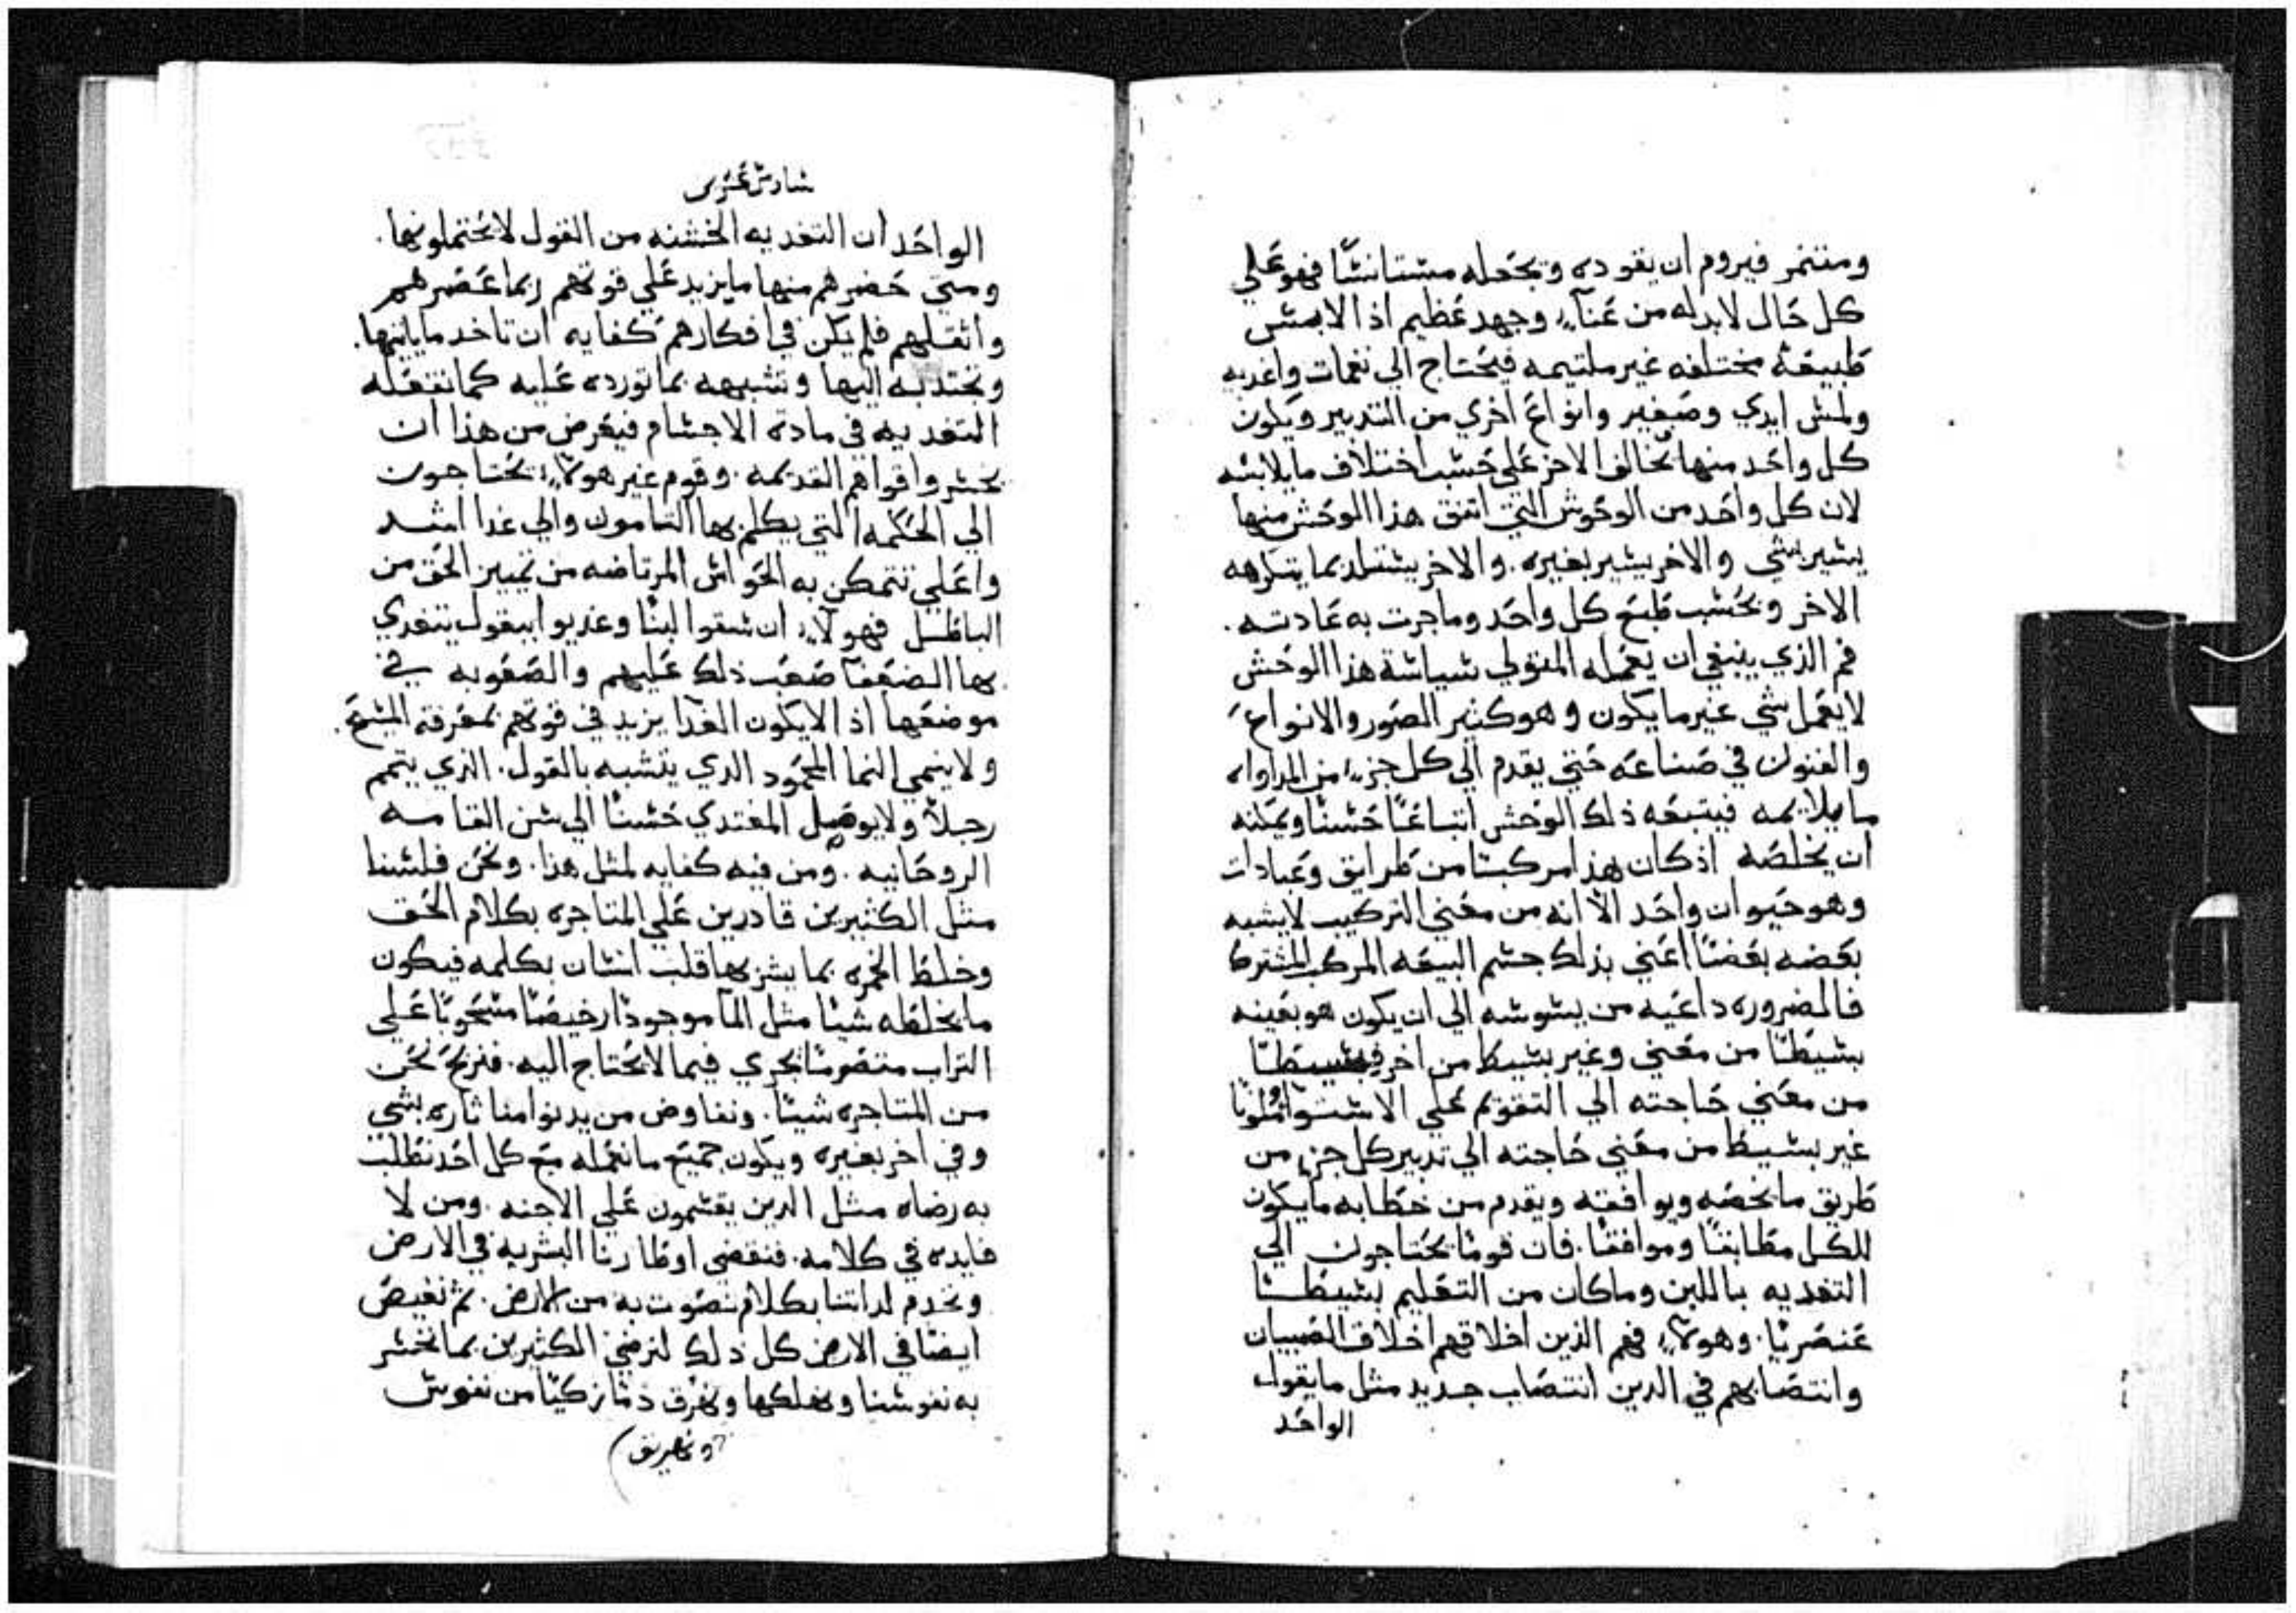 ومتنمر فيروم ان يقوده ويجعله مستانسًا فهو علي
كل حال لابد له من عنآءٍ وجهد عظيم اذ الابمس
طبيعة مختلفه غير ملتيمه فيحتاج الي نغمات واغديه
ولمس ايدي وصفير وانواع اخري من التدبير ويكون
كل واحد منها يخالف الاخر علي حسب اختلاف مايلابسه
لان كل واحد من الوحوش التي اتفق هذا الوحش منها
يسير بشي والاخر يسير بغيره. والاخر يستلد بما يتكرهه
الاخر وبحسب طبع كل واحد وماجرت به عادته.
فم الذي ينبغي ان يعمله المتولي سياسة هذا الوحش
لا يعمل شي غير ما يكون وهو كثير الصور والانواع
والفنون في صناعه حتي يقدم الي كل جزءٍ من المداواه
ما يلايمه فيتبعه ذلك الوحش اتباعًا حسنًا ويمكنه
ان يخلصه اذ كان هذا مركبًا من طرايق وعبادات
وهو حيوان واحد الاّ انه من معني التركيب لايشبه
بعضه بعضًا اعني بذلك جسم البيعه المركب المشترك
فالمضروره داعيه من يسوسه الي ان يكون هو بعينه
بسيطًا من معني وغير بسيط من اخر فبسيطًا
من معني حاجته الي التقوم علي الاستوا وملونًا
غير بسيط من معني حاجته الي تدبير كل جزءٍ من
طريق ما يخصه ويوافقه ويقدم من خطابه ما يكون
للكل مطابقًا وموافقًا. فان قومًا يحتاجون الي
التغديه باللبن وماكان من التعليم بسيطًا
عنصريًا. وهولآءٍ فهم الذين اخلاقهم اخلاق الصبيان
وانتصابهم في الدين انتصاب جديد مثل مايقول
الواحد
سادس عشر
الواحد ان التغديه الخشنه من القول لا يحتملونها.
ومتي حضرهم منها ما يزيد علي قوتهم ربما عصرهم
واثقلهم فلم يكن في افكارهم كفايه ان تاخد ماياتيها.
وتجتدبه اليها وتشبهه بما تورده عليه كما تفعله
التغديه في مادة الاجسام فيعرض من هذا ان
يخسروا قواهم القديمه. وقوم غير هولآءٍ يحتاجون
الي الحكمه التي يكلم بها التامون والي غدا اشد
واعلي تتمكن به الحواس المرتاضه من تمييز الحق من
الباطل فهولآءٍ ان سقوا لبنًا وغديوا ببقول يتغدي
بها الضعفآ صعب ذلك عليهم والصعوبه في
موضعها اذ لايكون الغدا يزيد في قوتهم بمعرفة المسيح.
ولا ينمي النما المحمود الدي يتشبه بالقول. الذي يتمم
رجلاً ولا يوصل المغتدي حسنًا الي سن القامه
الروحانيه. ومن فيه كفايه لمثل هذا. ونحن فلسنا
مثل الكثيرين قادرين علي المتاجره بكلام الحق
وخلط الخمره بما يسر بها قلب انسان بكلمه فيكون
ما يخلطه شيًا مثل المآ موجودًا رخيصًا مسحوبًا علي
التراب منتصومًا يجري فيما لا يحتاج اليه. فنربح نحن
من المتاجره شيئًا. ونفاوض من يدنوا منا تاره بشي
وفي اخر بغيره ويكون جميع ما نعمله مع كل احد نطلب
به رضاه مثل الدين يقسمون علي الاجنه. ومن لا
فايده في كلامه. فنقضي اوطارنا البشريه في الارض
ونخدم لداتنا بكلام نصوت به من الارض. ثم نغيص
ايضًا في الارض كل دلك لنرضي الكثيرين بما نخسر
به نفوسنا ونهلكها ونهرق دمًا زكيًا من نفوس